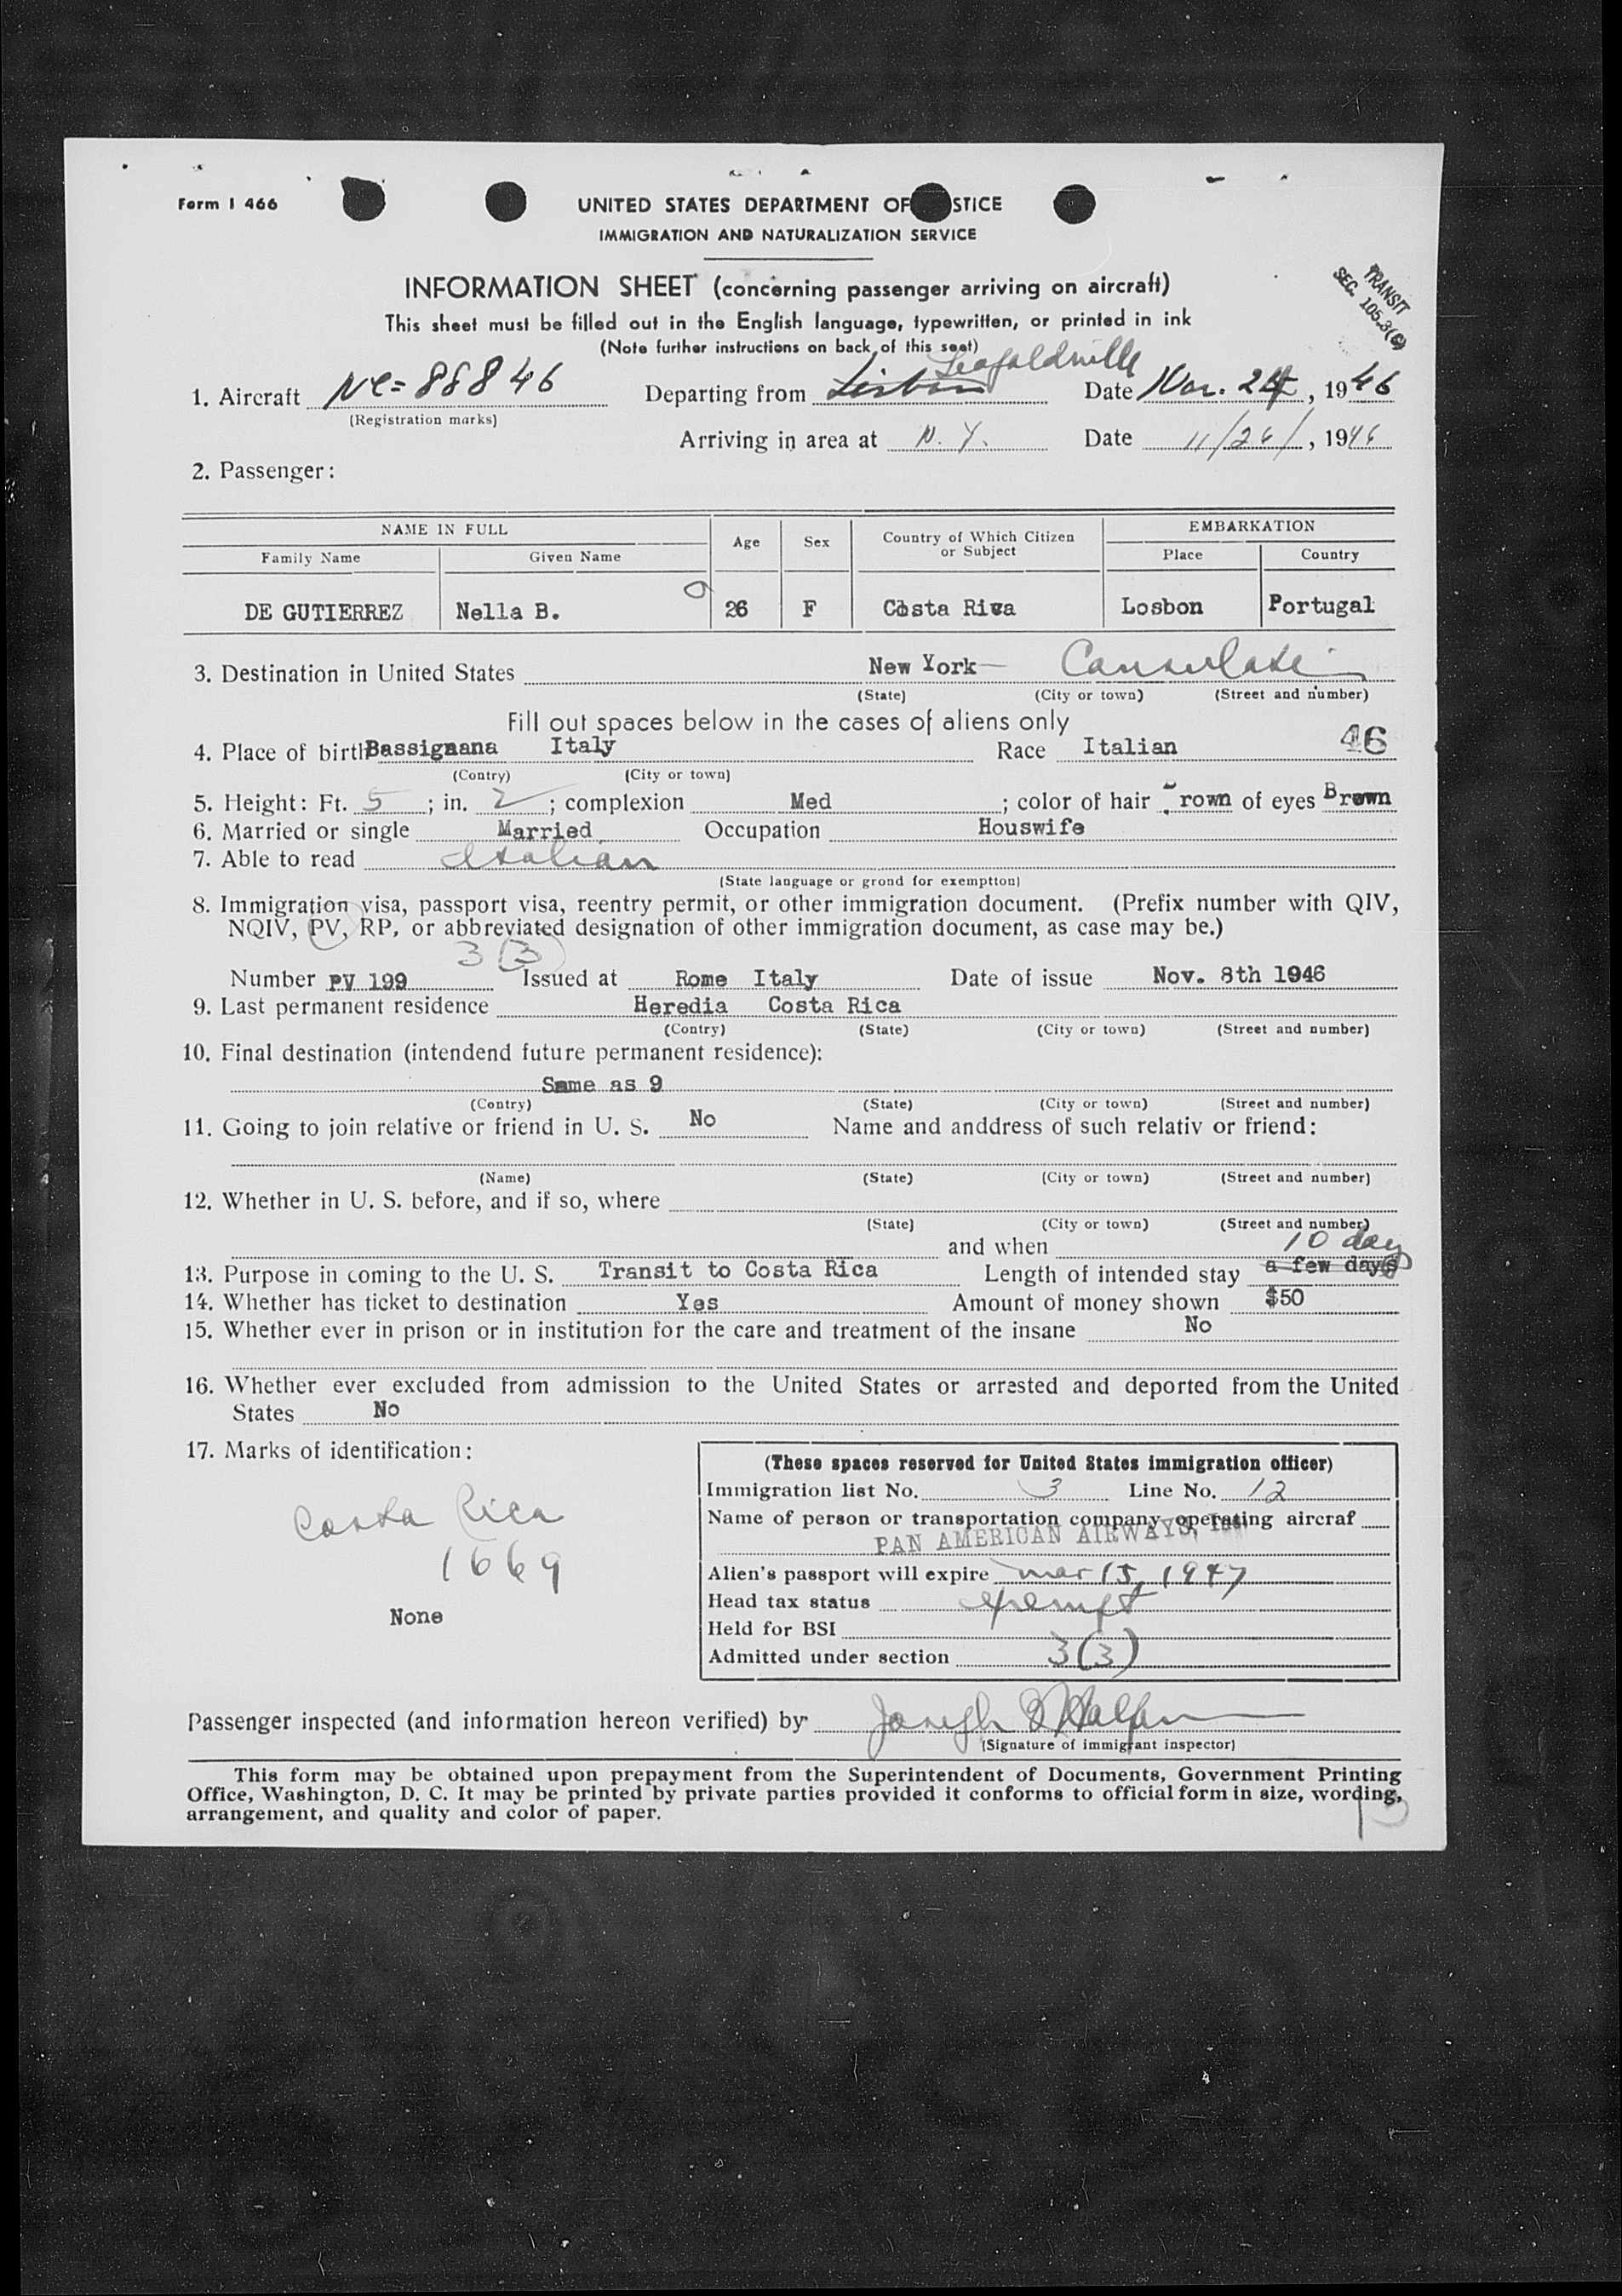 Form I 466
UNITED STATES DEPARTMENT OF STICE
IMMIGRATION AND NATURALIZATION SERVICE
INFORMATION SHEET (concerning passenger arriving on aircraft)
TRANSIT
SEC. 105.3(c)
This sheet must be filled out in the English language, typewritten, or printed in ink
(Note further instructions on back of this seet)
Leopoldville
1. Aircraft NC=88846 Departing from Lisbon Date Nov. 24, 1946
(Registration marks)
Arriving in area at N.Y. Date 11/26/, 1946
2. Passenger:
NAME IN FULL Age Sex Country of Which Citizen or Subject EMBARKATION
Family Name Given Name Place Country
DE GUTIERREZ Nella B. 26 F Costa Rica Losbon Portugal
3. Destination in United States New York Consulate
(State) (City or town) (Street and number)
Fill out spaces below in the cases of aliens only
46
4. Place of birth Bassignana Italy Race Italian
(Contry) (City or town)
5. Height: Ft. 5; in. 2; complexion Med; color of hair Brown of eyes Brown
6. Married or single Married Occupation Houswife
7. Able to read Italian
(State language or grond for exemption)
8. Immigration visa, passport visa, reentry permit, or other immigration document. (Prefix number with QIV,
NQIV, PV, RP, or abbreviated designation of other immigration document, as case may be.)
3(3)
Number PV 199 Issued at Rome Italy Date of issue Nov. 8th 1946
9. Last permanent residence Heredia Costa Rica
(Contry) (State) (City or town) (Street and number)
10. Final destination (intendend future permanent residence):
Same as 9
(Contry) (State) (City or town) (Street and number)
11. Going to join relative or friend in U. S. No Name and anddress of such relativ or friend:
(Name) (State) (City or town) (Street and number)
12. Whether in U. S. before, and if so, where
(State) (City or town) (Street and number)
and when
10 days
13. Purpose in coming to the U. S. Transit to Costa Rica Length of intended stay a few days
14. Whether has ticket to destination Yes Amount of money shown $50
15. Whether ever in prison or in institution for the care and treatment of the insane No
16. Whether ever excluded from admission to the United States or arrested and deported from the United
States No
17. Marks of identification:
Costa Rica
1669
None
(These spaces reserved for United States immigration officer)
Immigration list No. 3 Line No. 12
Name of person or transportation company operating aircraf
PAN AMERICAN AIRWAYS, Inc.
Alien's passport will expire Mar 15, 1947
Head tax status exempt
Held for BSI
Admitted under section 3(3)
Passenger inspected (and information hereon verified) by Joseph
(Signature of immigrant inspector)
This form may be obtained upon prepayment from the Superintendent of Documents, Government Printing
Office, Washington, D. C. It may be printed by private parties provided it conforms to official form in size, wording,
arrangement, and quality and color of paper.